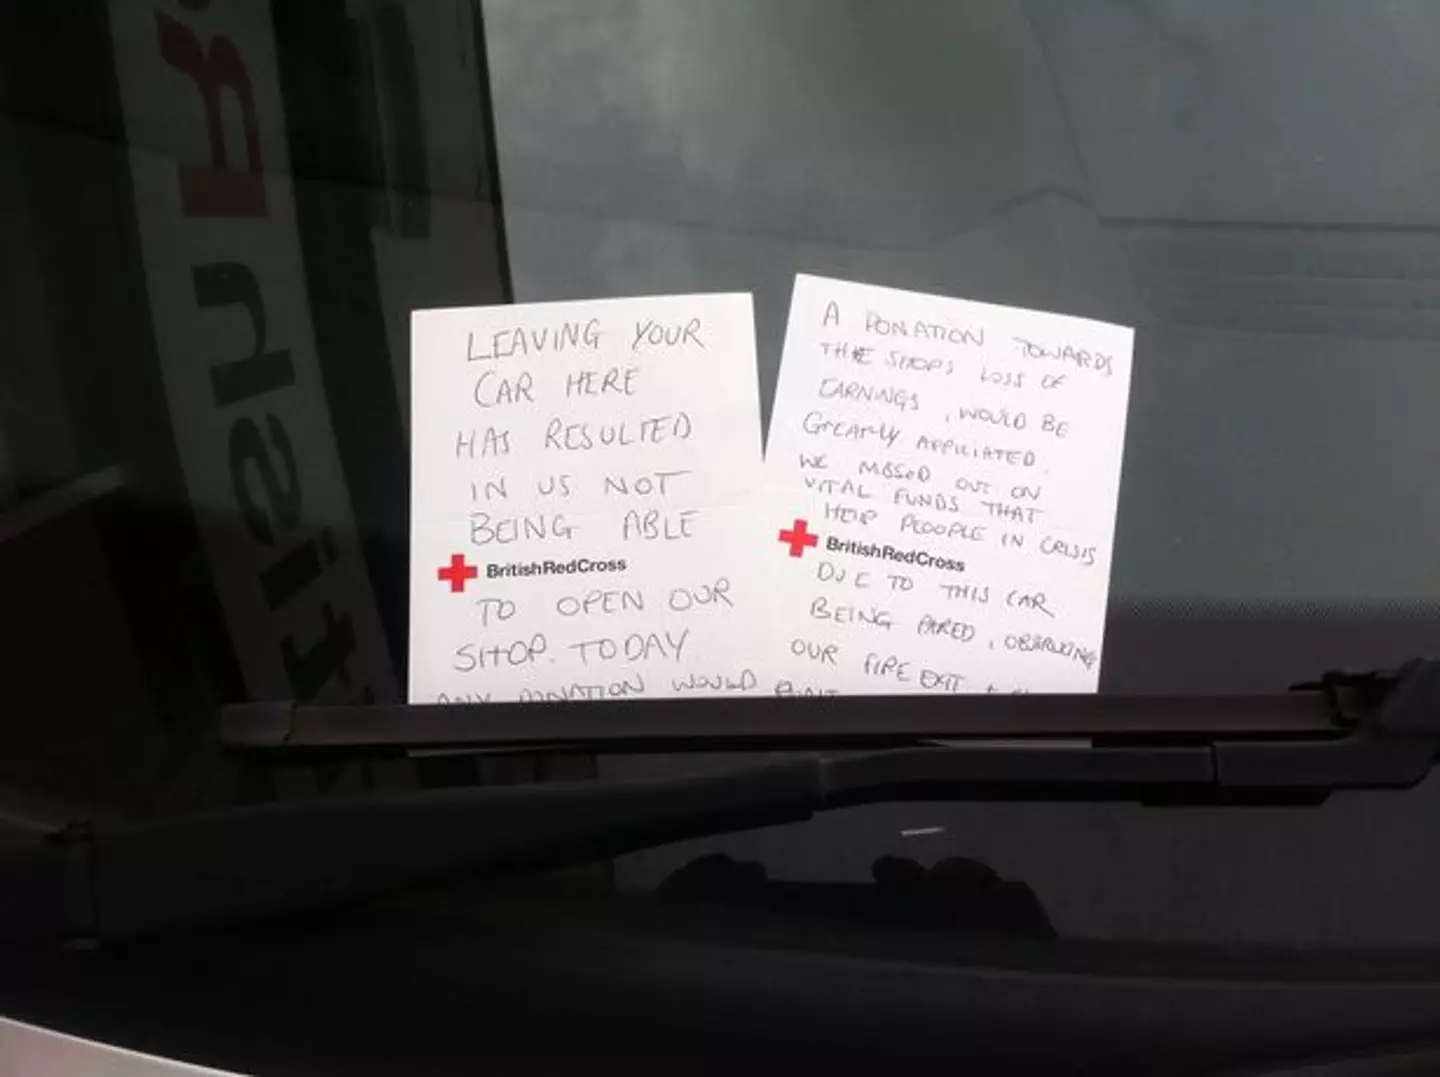 LEAVING YOUR
CAR HERE
HAS RESULTED
IN US NOT
BEING ABLE
BritishRedCross
TO OPEN OUR
SHOP. TODAY
ANY DONATION WOULD
A DONATION TOWARDS
THE SHOPS LOSS OF
EARNINGS, WOULD BE
GREATLY APPICIATED.
WE MISSED OUT ON
VITAL FUNDS THAT
HELP PEOOPLE IN CRISIS
BritishRedCross
DUE TO THIS CAR
BEING PARED, OBSRUCTING
OUR FIRE EXIT